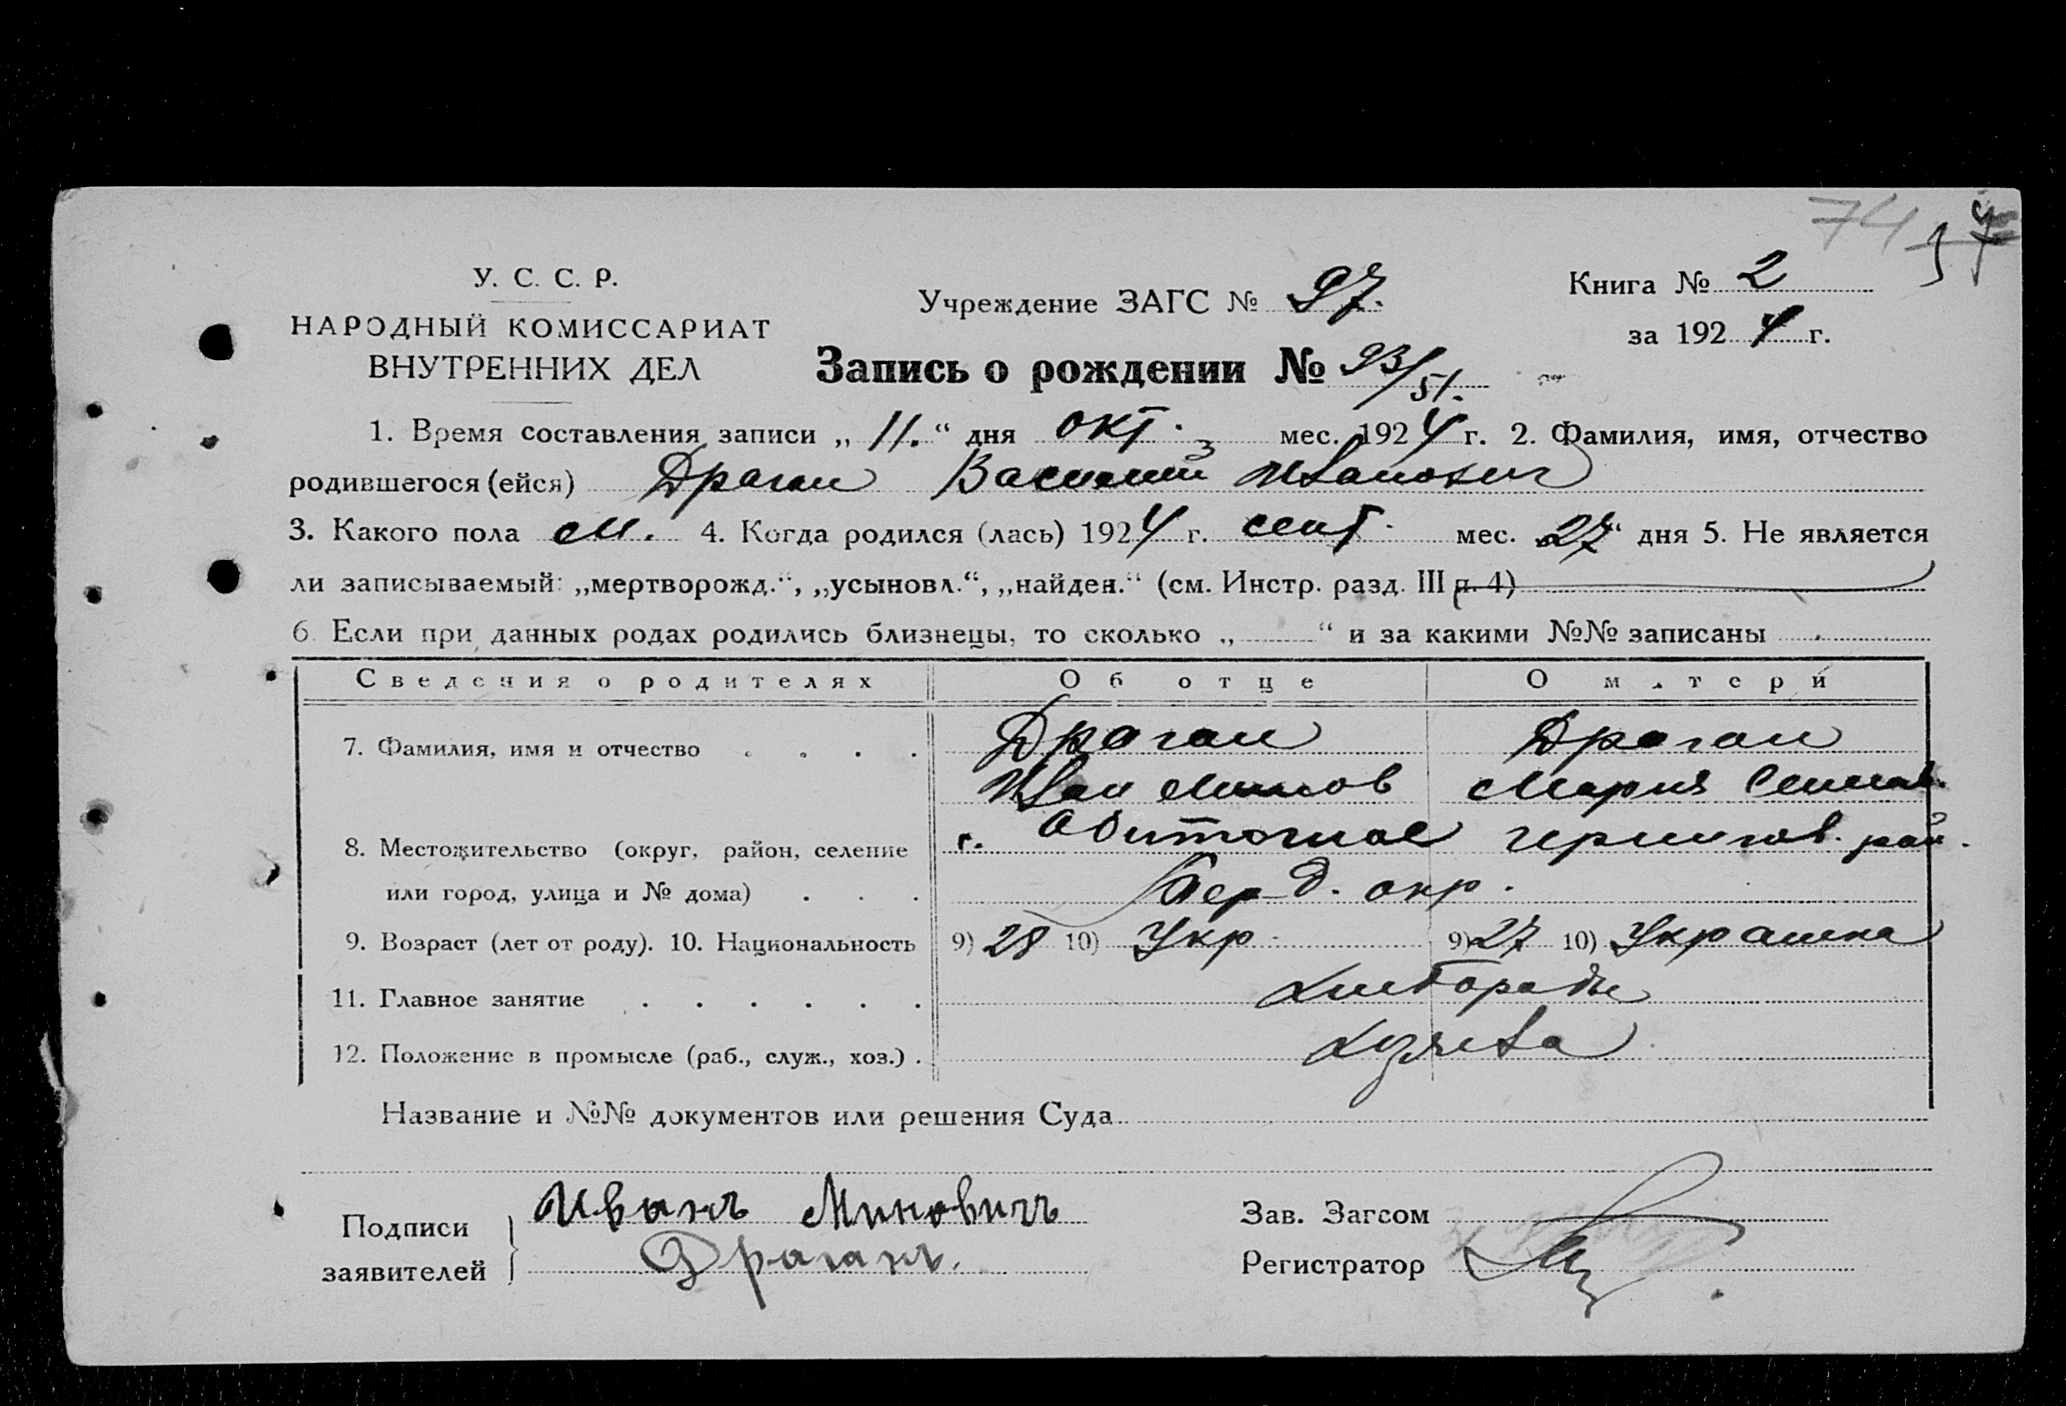 74
У. С. С. Р.
НАРОДНЫЙ КОМИССАРИАТ
ВНУТРЕННИХ ДЕЛ
Учреждение ЗАГС № 97.
Книга № 2
за 1924 г.
Запись о рождении № 93/51.
1. Время составления записи „11.“ дня окт. мес. 1924 г. 2. Фамилия, имя, отчество
родившегося (ейся) Драган Василий Иванович
3. Какого пола м. 4. Когда родился (лась) 1924 г. сент. мес. 27 дня 5. Не является
ли записываемый: „мертворожд.“, „усыновл.“, „найден.“ (см. Инстр. разд. III п. 4)
6. Если при данных родах родились близнецы, то сколько „ “ и за какими №№ записаны
Сведения о родителях Об отце О матери
7. Фамилия, имя и отчество . . . . Драган Драган
Иван Минов Мария
8. Местожительство (округ, район, селение г. Обиточное чернигов. рай.
или город, улица и № дома) . . . Берд. окр.
9. Возраст (лет от роду). 10. Национальность 9) 28 10) Укр. 9) 27 10) Украинка
11. Главное занятие . . . . . . хлебороды
12. Положение в промысле (раб., служ., хоз.) . хозяева
Название и №№ документов или решения Суда
Подписи заявителей } Иванъ Миновичъ
Драганъ.
Зав. Загсом
Регистратор